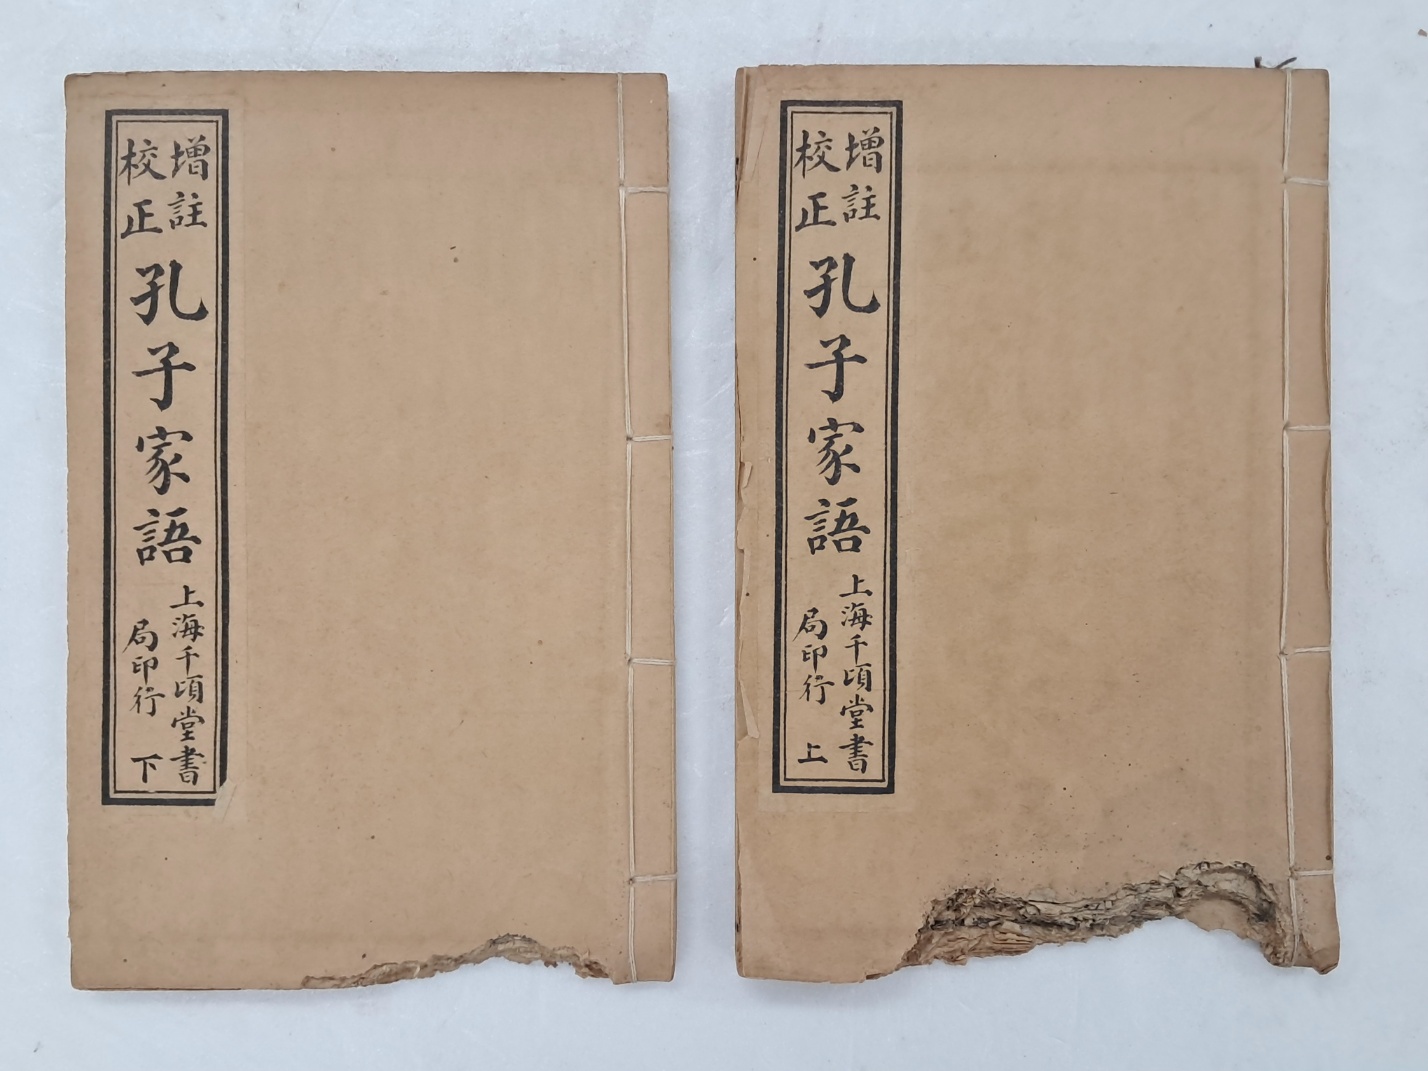 增註
校正
孔子家語
上海千頃堂書
局印行
下
增註
校正
孔子家語
上海千頃堂書
局印行
上